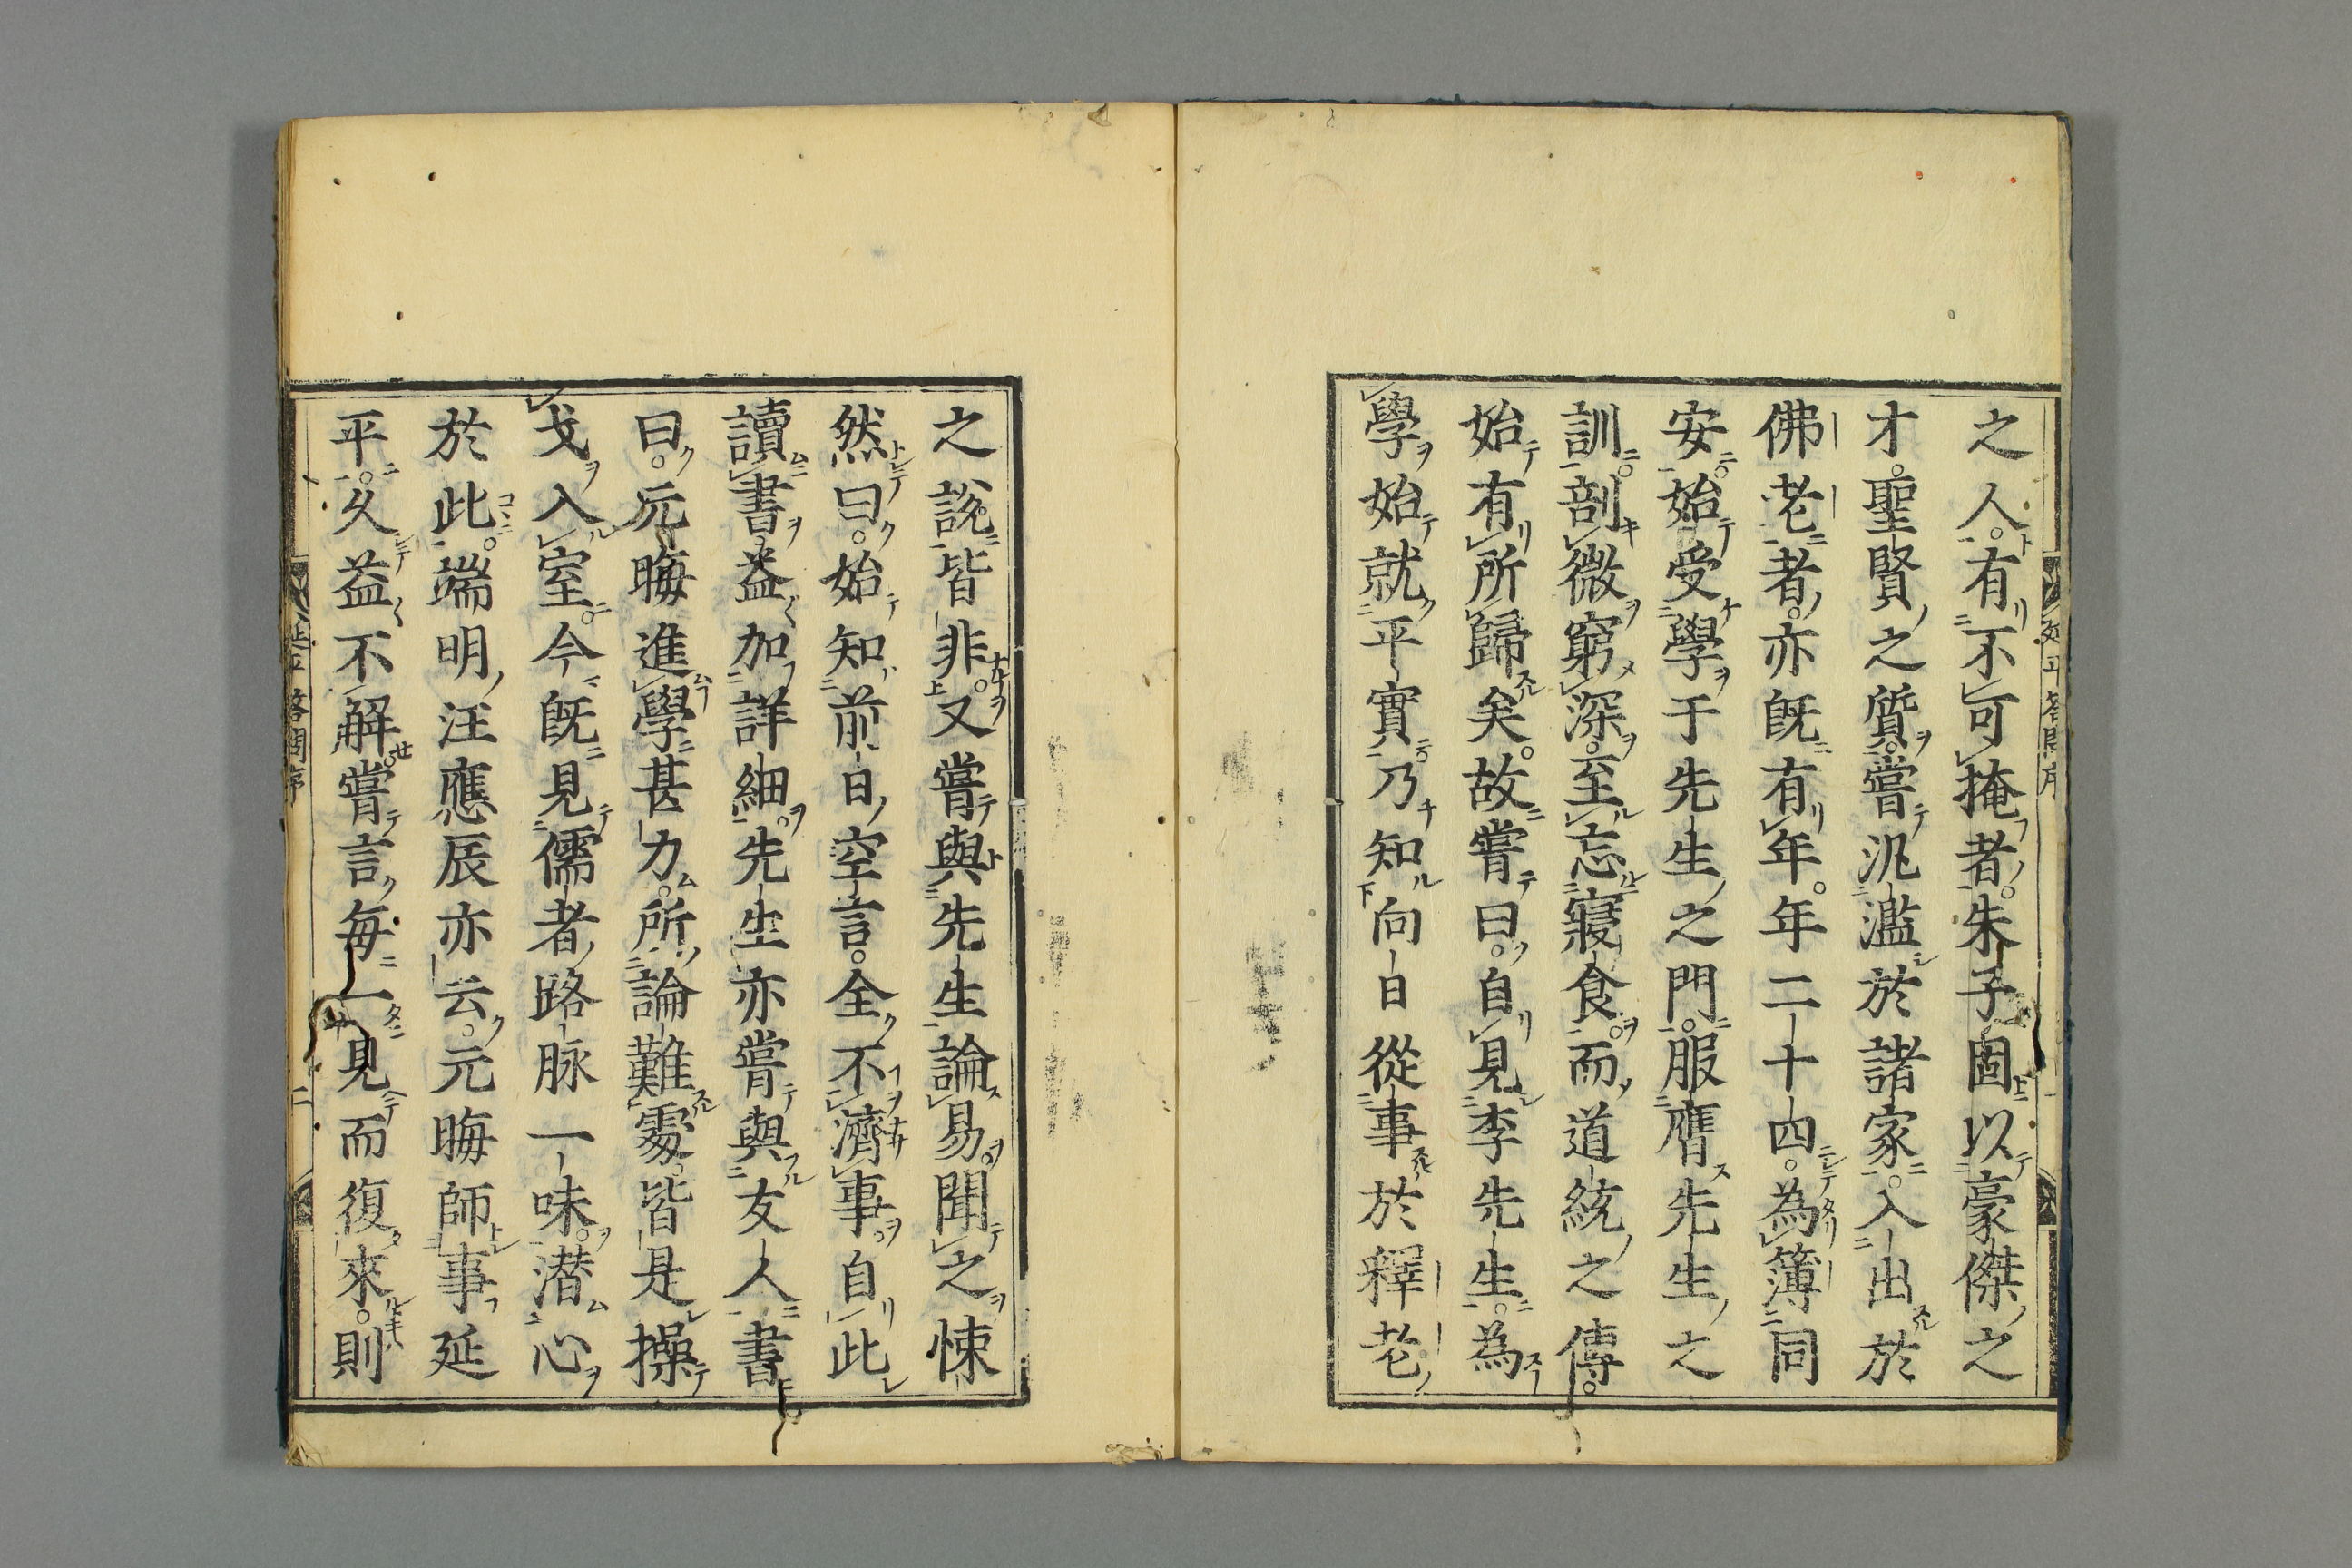 之人有不可掩者朱子固以豪傑之
才聖賢之質嘗汎濫於諸家入出於
佛老者亦既有年年二十四為簿同
安始受學于先生之門服膺先生之
訓剖微窮深至忘寢食而道統之傳
始有所歸矣故嘗曰自見李先生為
學始就平實乃知向日從事於釋老
之說皆非又嘗與先生論易聞之悚
然曰始知前日空言全不濟事自此
讀書益加詳細先生亦嘗與友人書
曰元晦進學甚力所論難處皆是操
戈入室今既見儒者路脉一味潜心
於此端明汪應辰亦云元晦師事延
平久益不解嘗言每一見而復來則
延平答問序
二